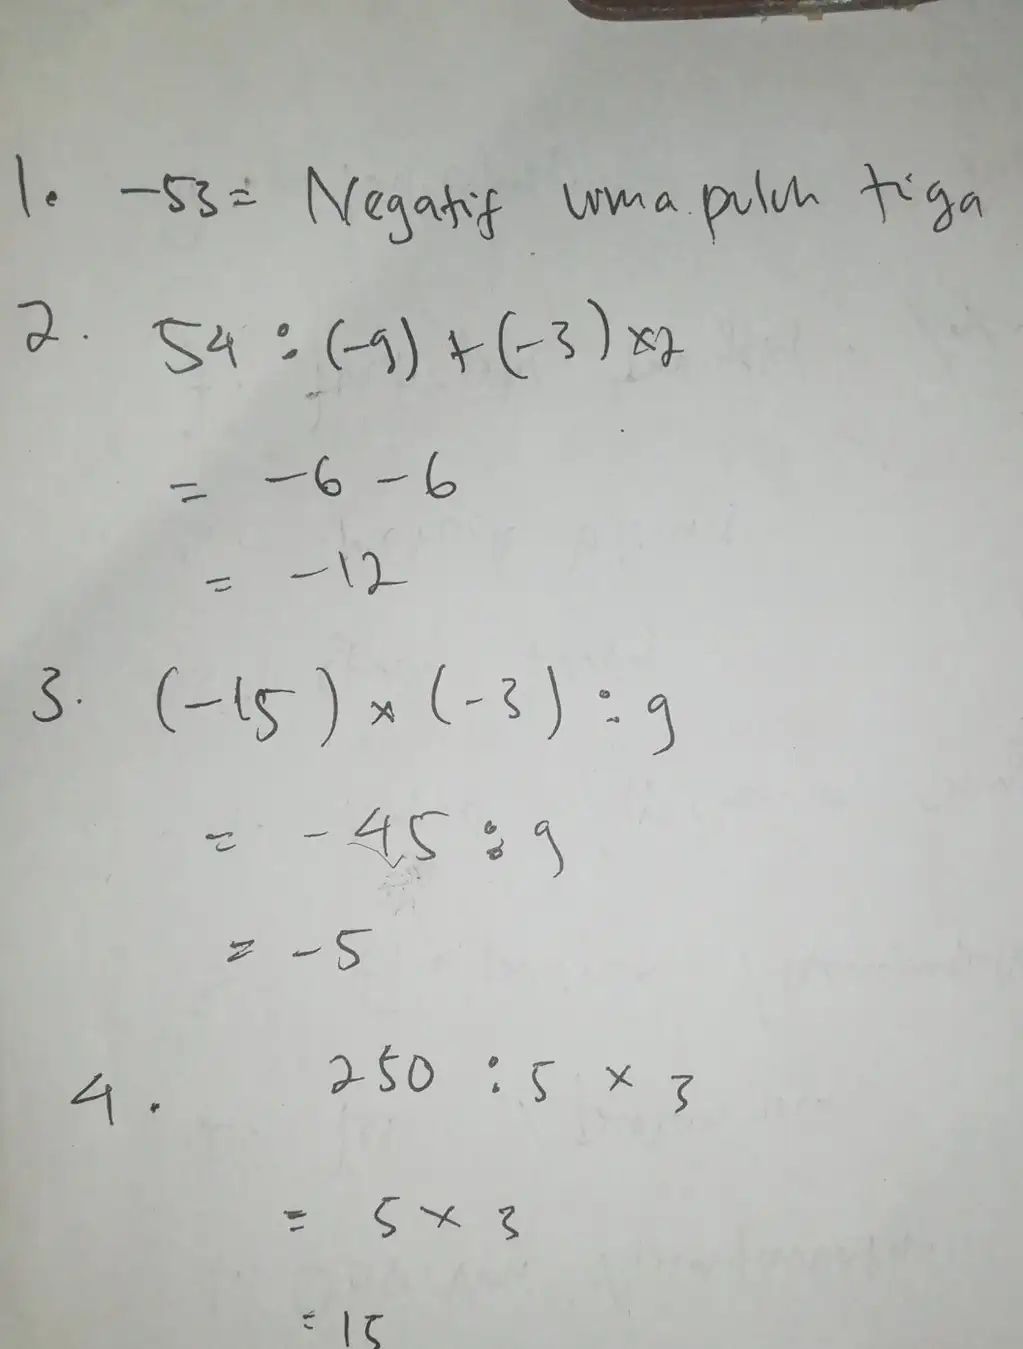 1. -53 = Negatif lima puluh tiga
2. 54 : (-9) + (-3) x 2
= -6 - 6
= -12
3. (-15) x (-3) : 9
= -45 : 9
= -5
4. 250 : 5 x 3
= 5 x 3
= 15